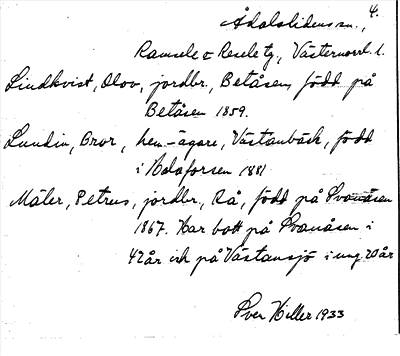 4.
Ådalslidens sn.,
Ramsele o Resele tg., Västernorrl. l.
Lindkvist, Olov, jordbr., Betåsen, född på
Betåsen 1859.
Lundin, Bror, hem.-ägare, Västanbäck, född
i Ådaforsen 1881
Mäler, Petrus, jordbr., Rå, född på Svanåsen
1867. Har bott på Svanåsen i
42 år och på Västansjö i ung. 20 år
Sven Hiller 1933